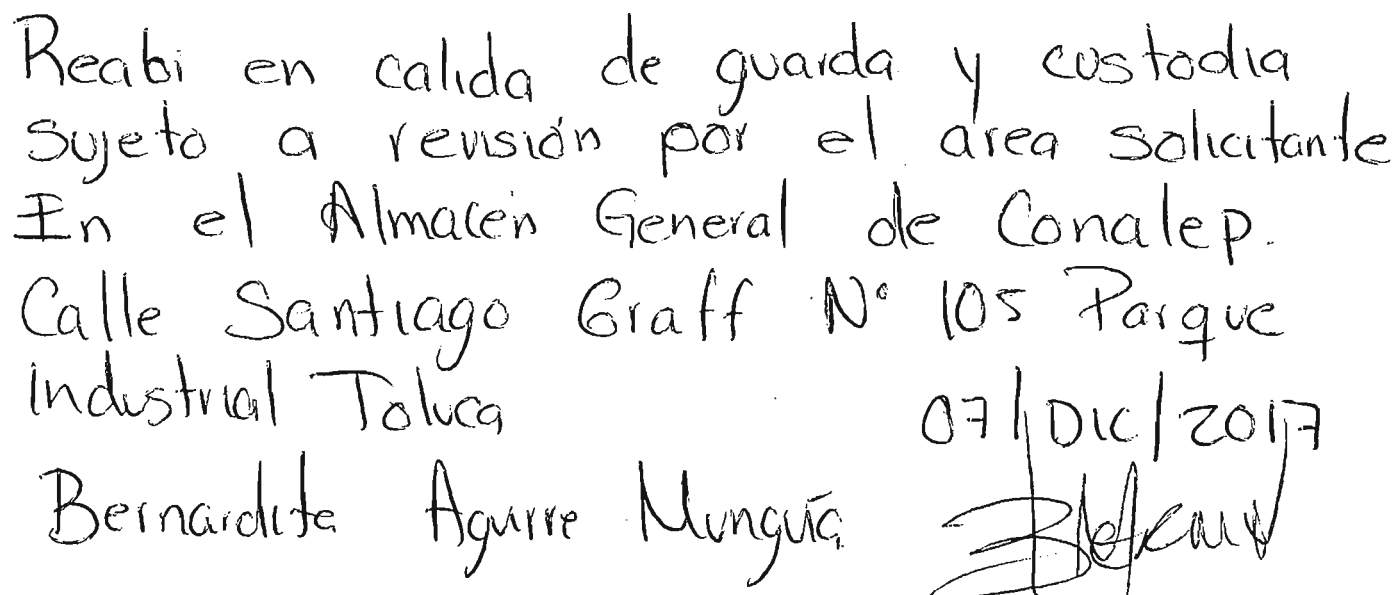 Recibi en calida de guarda y custodia
Sujeto a revisión por el área solicitante
En el Almacén General de Conalep.
Calle Santiago Graff N° 105 Parque
industrial Toluca
07/DIC/2017
Bernardita Aguirre Munguía